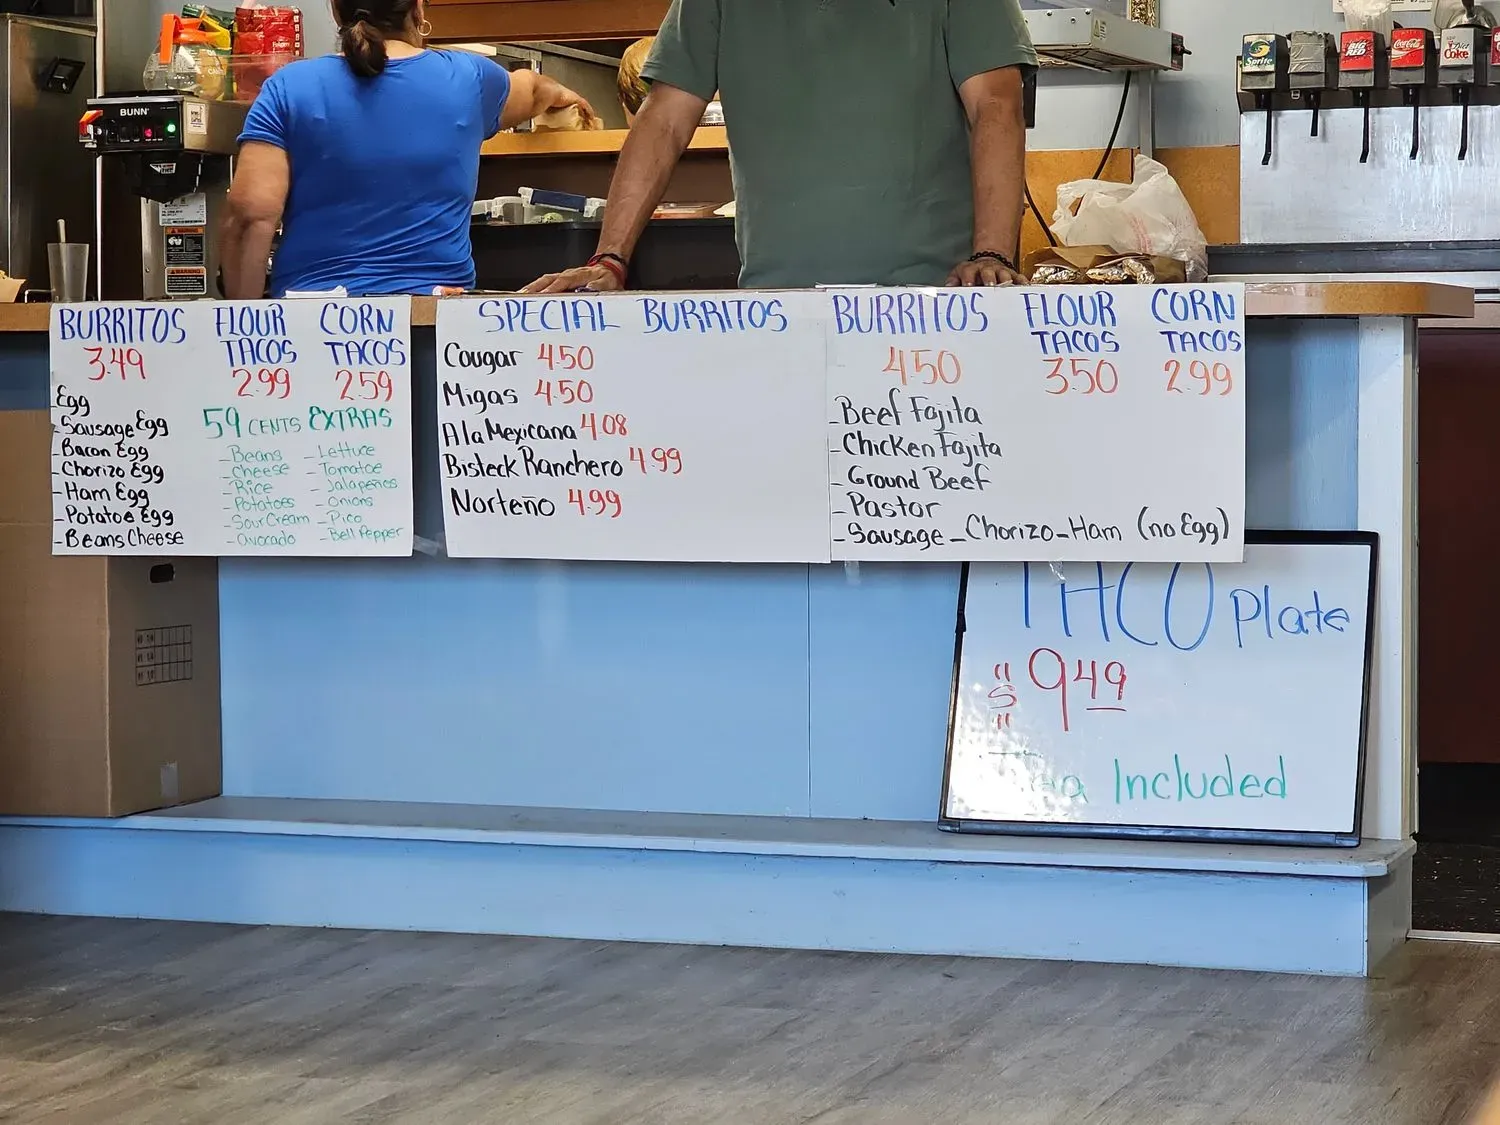 BUNN
Sprite
BIG RED
Coca-Cola
Diet Coke
WARNING
WARNING
BURRITOS
3.49
FLOUR TACOS
2.99
CORN TACOS
2.59
Egg
-Sausage Egg
-Bacon Egg
-Chorizo Egg
-Ham Egg
-Potatoe Egg
-Beans Cheese
59 CENTS EXTRAS
-Beans
-Cheese
-Rice
-Potatoes
-Sour Cream
-Avocado
-Lettuce
-Tomatoe
-Jalapeños
-Onions
-Pico
-Bell Pepper
SPECIAL BURRITOS
Cougar 4.50
Migas 4.50
Ala Mexicana 4.08
Bisteck Ranchero 4.99
Norteño 4.99
BURRITOS
4.50
FLOUR TACOS
3.50
CORN TACOS
2.99
-Beef Fajita
-Chicken Fajita
-Ground Beef
-Pastor
-Sausage -Chorizo-Ham (no Egg)
TACO Plate
"$" 9 49
Included